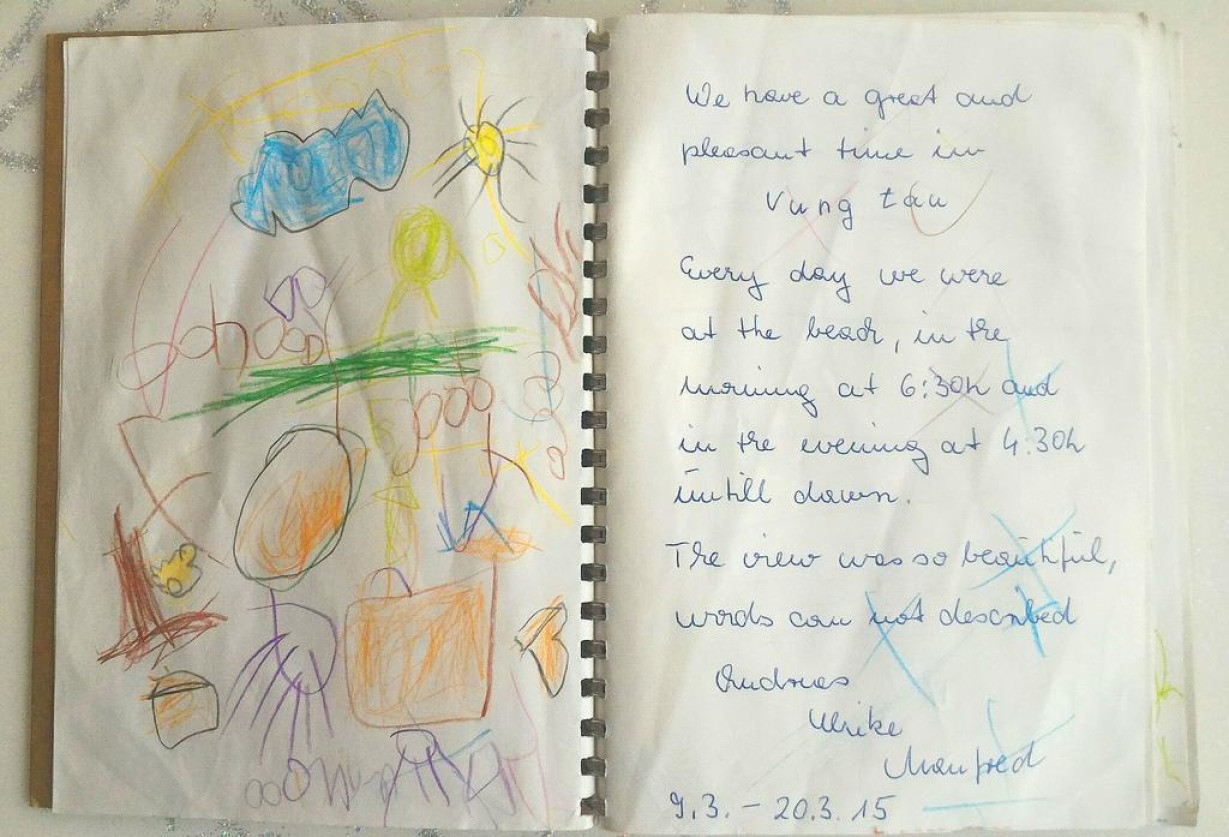 We have a great and
pleasant time in
Vung tau
Every day we were
at the beach, in the
morning at 6:30h and
in the evening at 4:30h
untill down.
The view was so beautiful,
words can not described
Andreas
Ulrike
Manfred
9.3. - 20.3.15